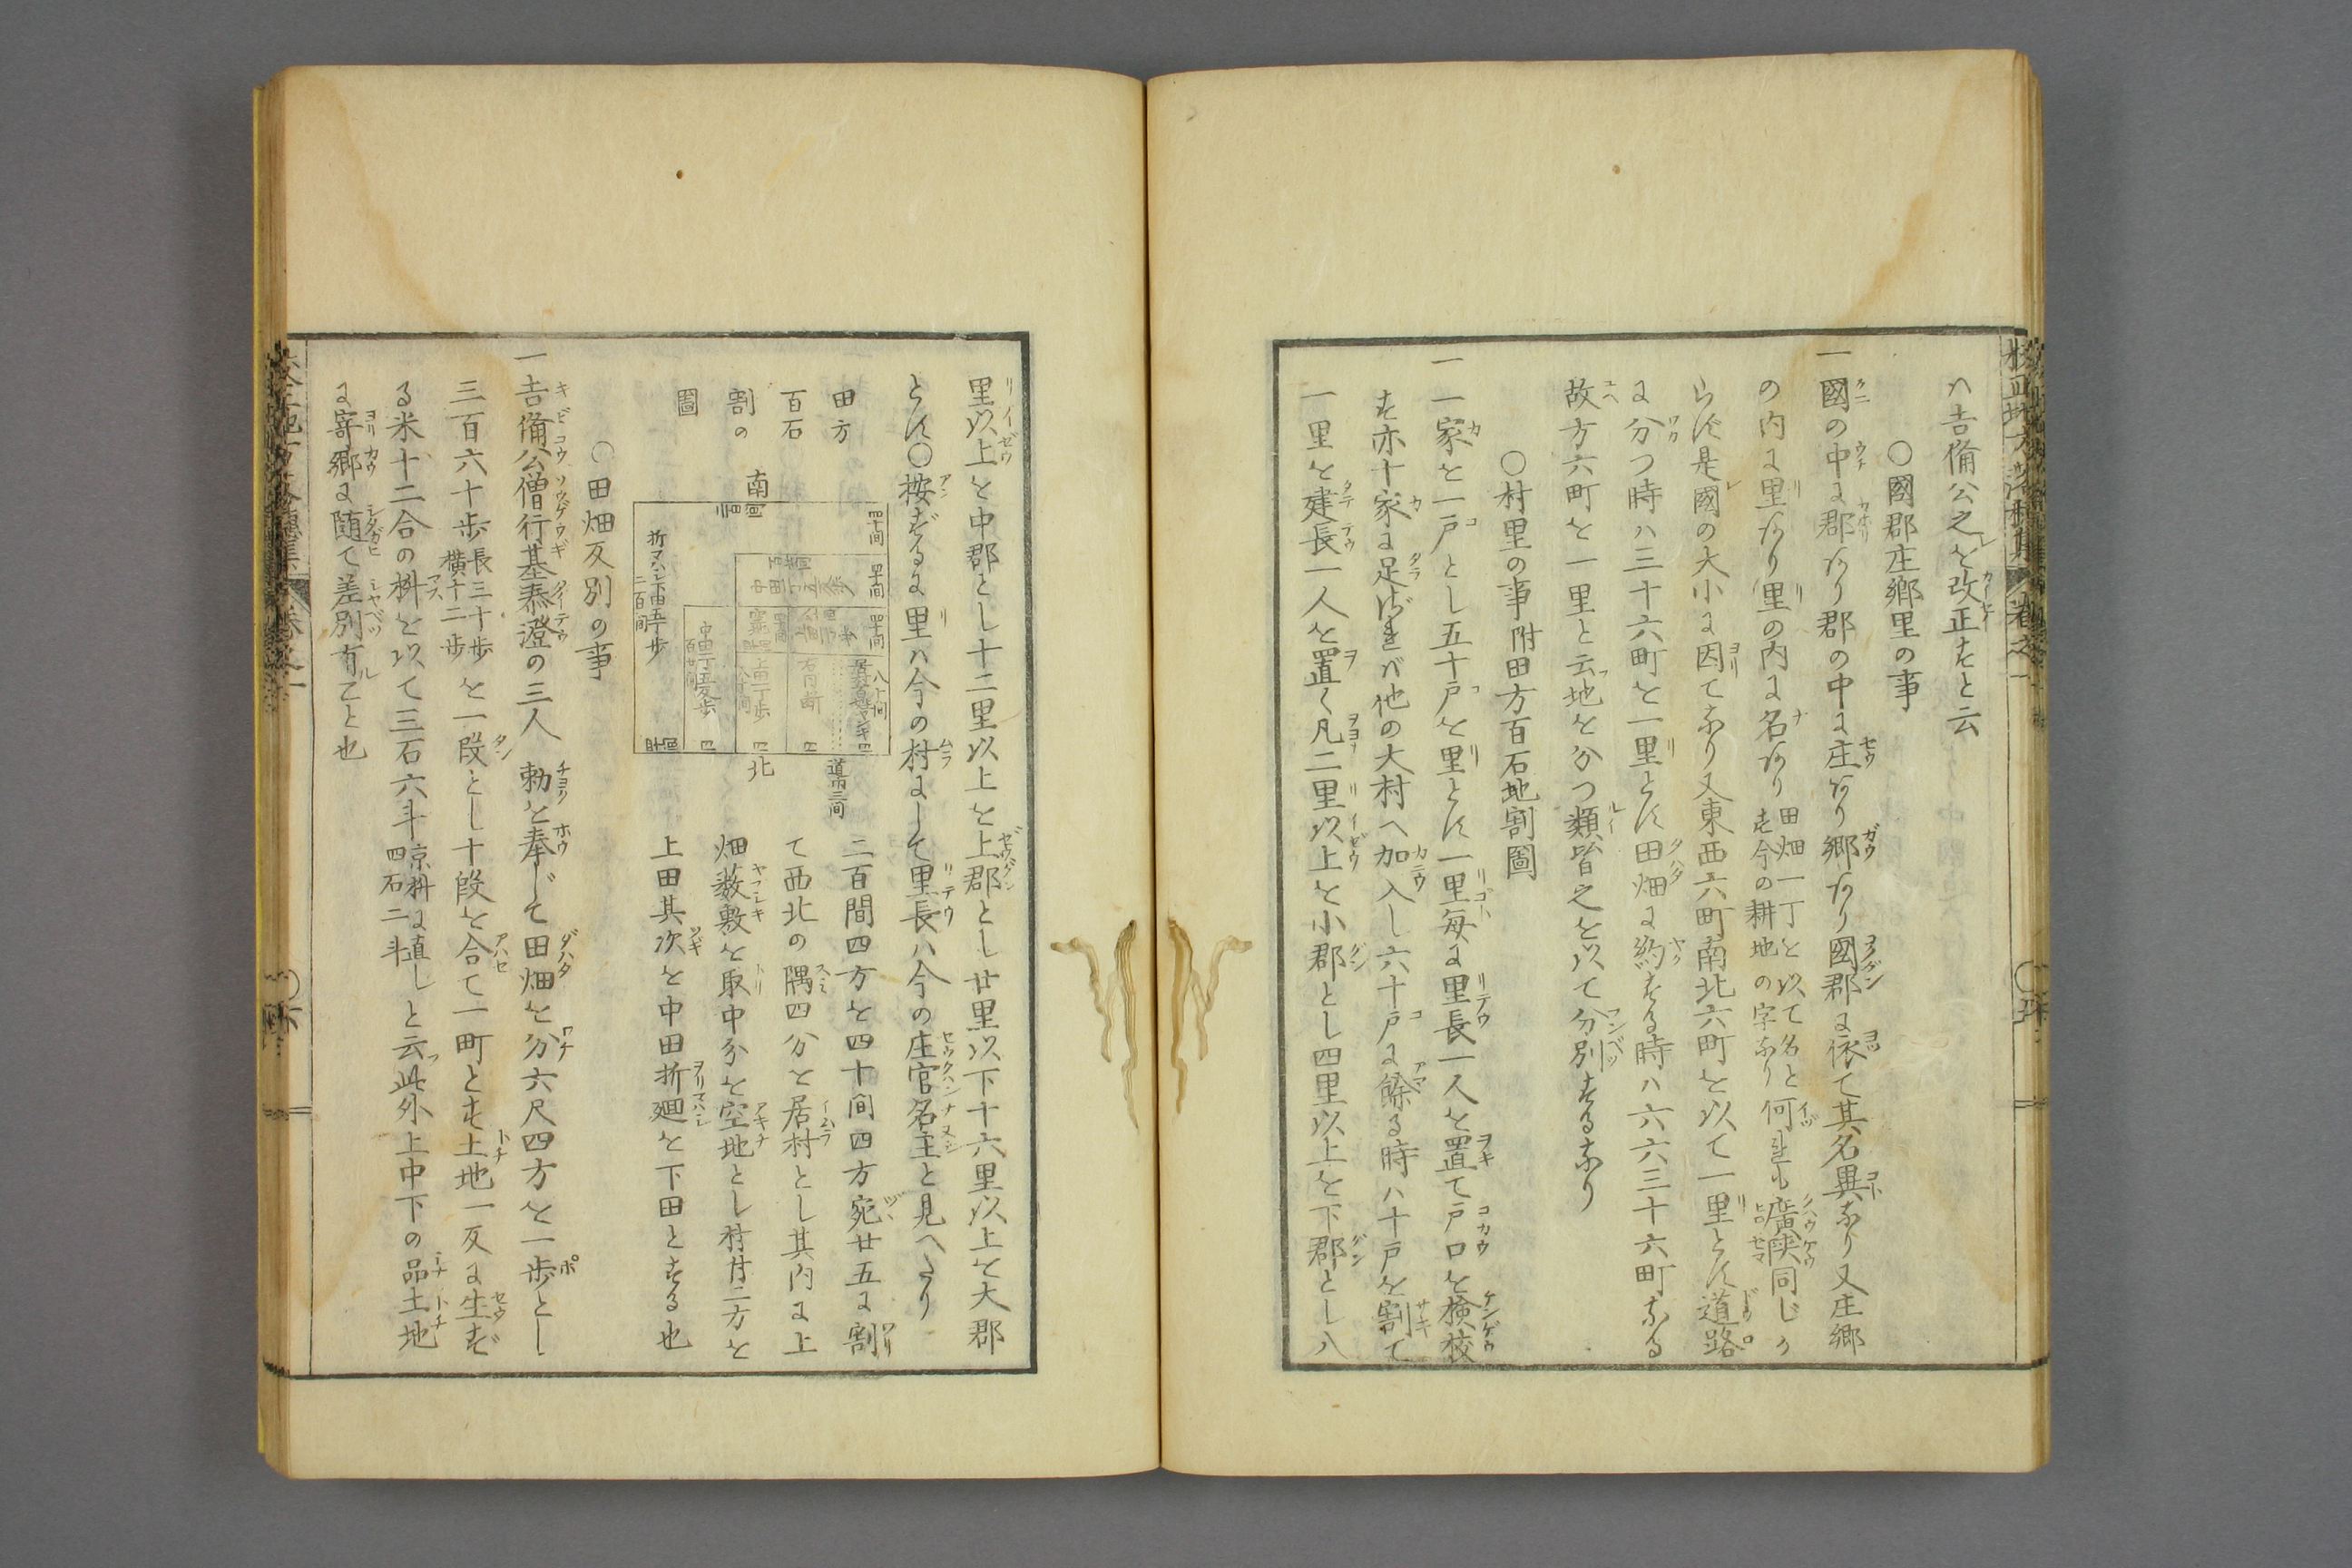 ハ吉備公之を改正すと云
○國郡庄郷里の事
一國の中に郡あり郡の中に庄あり郷あり國郡に依て其名異なり又庄郷
の内に里あり里の内に名あり田畑一丁を以て名と何れも廣狭同じか
す今の耕地の字なり
らず是國の大小に因てなり又東西六町南北六町を以て一里とす道路
に分つ時ハ三十六町を一里とす田畑に約する時ハ六六三十六町なる
故方六町を一里と云地を分つ類皆之を以て分別するなり
○村里の事附田方百石地割圖
一一家を一戸とし五十戸を里とす一里毎に里長一人を置て戸口を檢校
す亦十家に足ざれバ他の大村へ加入し六十戸に餘る時ハ十戸を割て
一里を建長一人を置く凡二里以上を小郡とし四里以上を下郡とし八
里以上を中郡とし十二里以上を上郡とし廿里以下十六里以上を大郡
とす○按ずるに里ハ今の村にして里長ハ今の庄官名主と見へたり
田方
百石
割の
圖
南
北
四十間
四十間
四十間
八十間
道間三間
折マハシ下田五十歩
二百間
二百間四方を四十間四方宛廿五に割
て西北の隅四分を居村とし其内に上
畑藪敷を取中分を空地とし村廿二方を
上田其次を中田折廻を下田とする也
○田畑反別の事
一吉備公僧行基泰澄の三人 勅を奉じて田畑を分六尺四方を一歩とし
三百六十歩長三十歩横十二歩を一段とし十段を合て一町とす土地一反に生ず
る米十二合の枡を以て三石六斗京枡に直し四石二斗と云此外上中下の品土地
に寄郷に随て差別有こと也